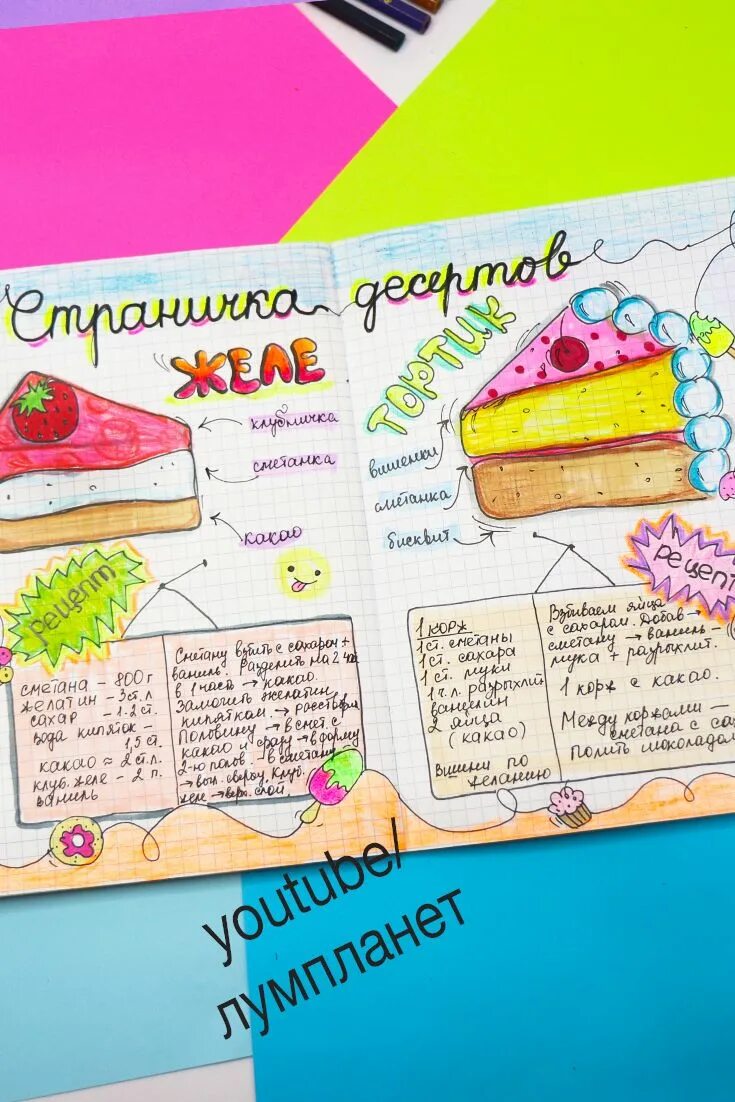 Страничка десертов
ЖЕЛЕ
клубничка
сметанка
какао
рецепт
сметана – 800 г
желатин – 3 ст. л
сахар – 1-2 ст.
вода кипяток –
1,5 ст.
какао ≈ 2 ст. л.
клуб. желе – 2 п.
ваниль
Сметану взбить с сахаром +
ваниль. Разделить на 2 час
в 1 часть → какао.
Замочить желатин
кипятком → расствори
Половину → в смет. с
какао и сразу → в форму
2-ю полов. – в сметану
→ выл. сверху. Клуб.
желе → верх. слой.
ТОРТИК
вишенки
сметанка
бисквит
рецепт
1 корж
1 ст. сметаны
1 ст. сахара
1 ст. муки
1 ч. л. разрыхлит
ванилин
2 яйца
(какао)
Вишни по
желанию
Взбиваем яйца
с сахаром. Добав →
сметану → ваниль –
мука + разрыхлит.
1 корж с какао.
Между коржами –
сметана с са
Полить шоколадом
youtube/
лумпланет